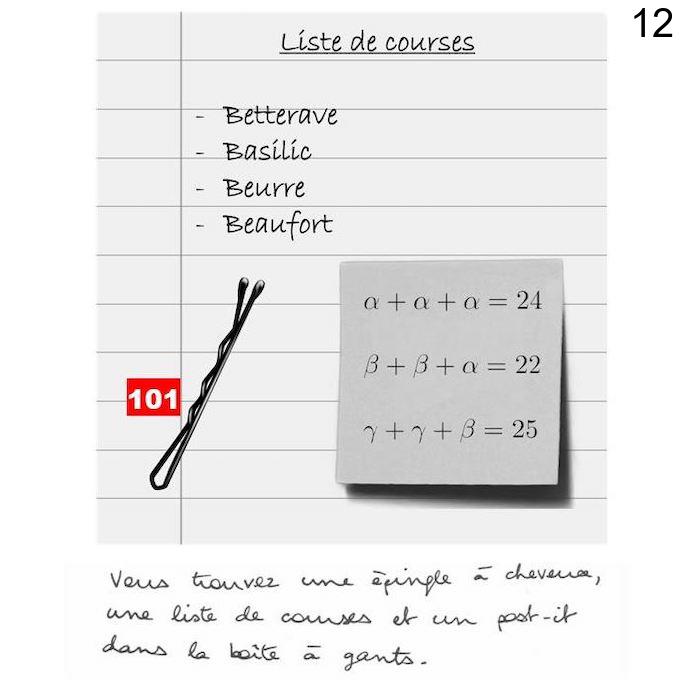 12
Liste de courses
- Betterave
- Basilic
- Beurre
- Beaufort
α + α + α = 24
β + β + α = 22
γ + γ + β = 25
101
Vous trouvez une épingle à cheveux,
une liste de courses et un post-it
dans la boîte à gants.